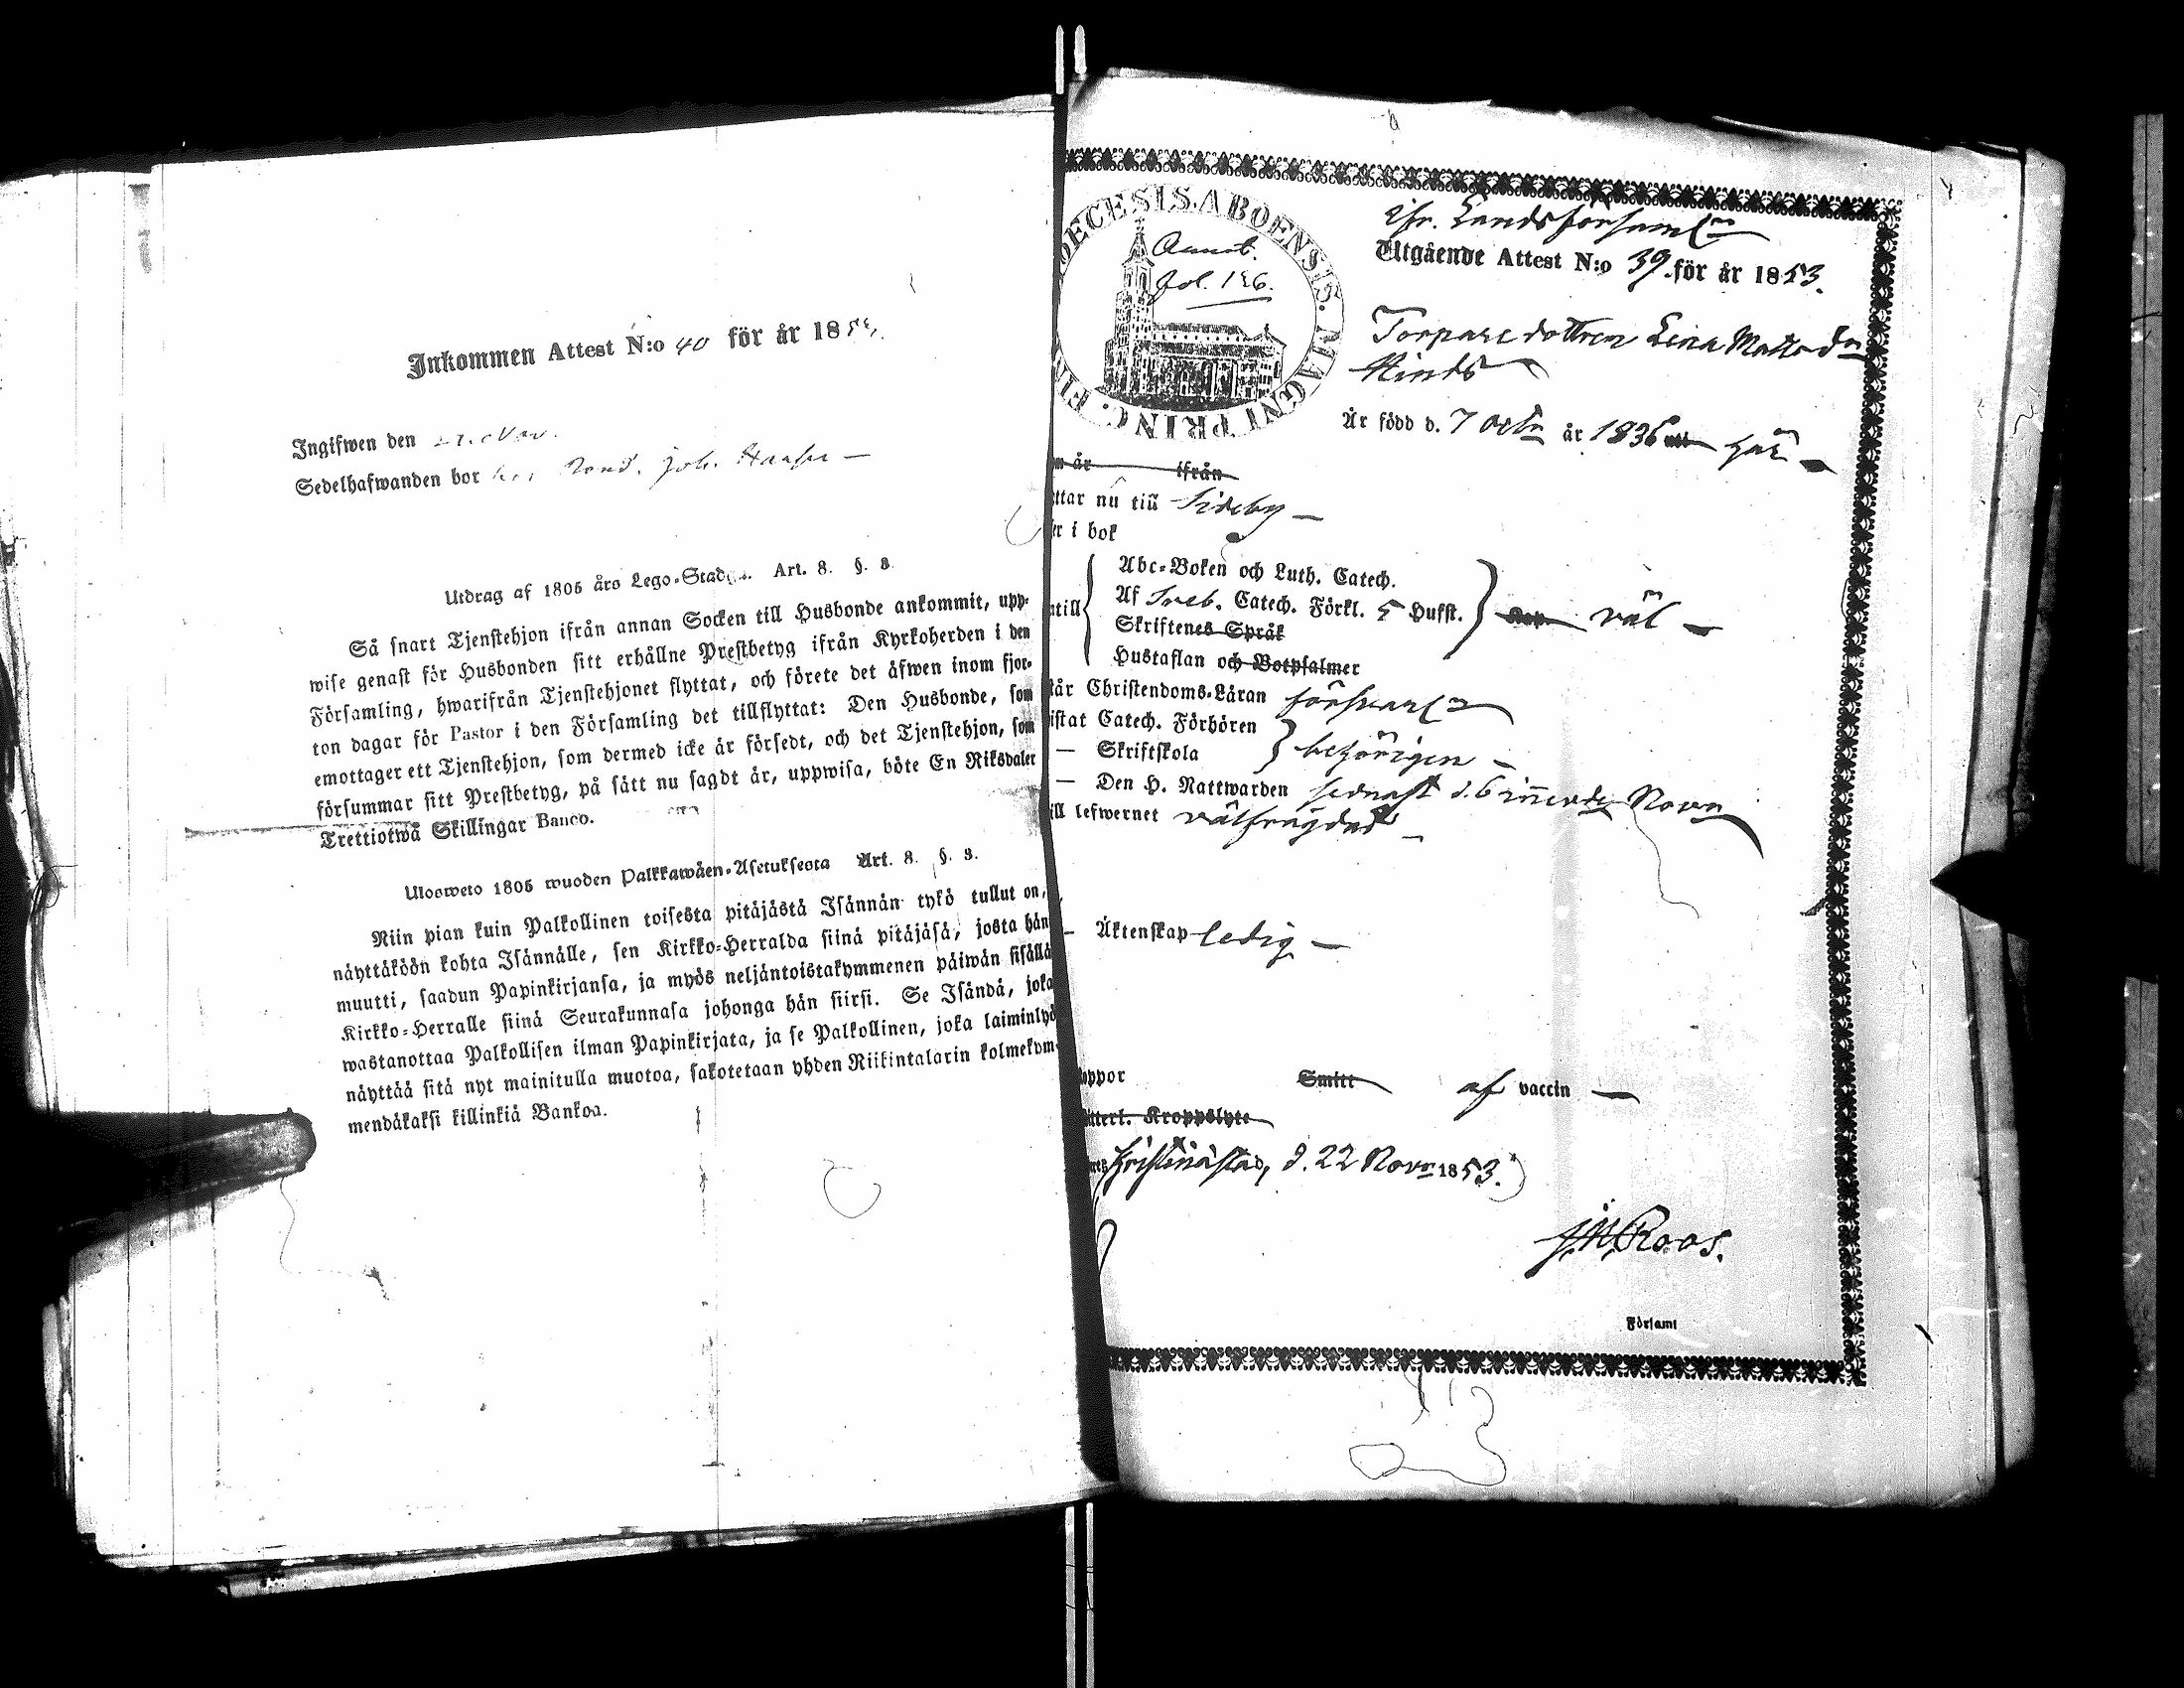 Inkommen Attest N:o 40 för år 185
Ingifwen den Nov.
Sedelhafwanden bor Bond. Joh.
Utdrag af 1805 års Lego-Stadga. Art. 8. §. 3
Så snart Tjenstehjon ifrån annan Socken till Husbonde ankommit, upp-
wise genast för Husbonden sitt erhållne Prestbetyg ifrån Kyrkoherden i den
Församling, hwarifrån Tjenstehjonet flyttat, och förete det äfwen inom fjor-
ton dagar för Pastor i den Församling det tillflyttat: Den Husbonde, som
emottager ett Tjenstehjon, som dermed icke är försedt, och det Tjenstehjon, som
försummar sitt Prestbetyg, på sätt nu sagdt är, uppwisa, böte En Riksdaler
Trettiotwå Skillingar Banco.
Ulosweto 1805 wuoden Palkkawäen-Asetuksesta Art. 8. §. 3.
Niin pian kuin Palkollinen toisesta pitäjästä Isännän tykö tullut on,
näyttäköön kohta Isännälle, sen Kirkko-Herralda siinä pitäjäsä, josta hän
muutti, saadun Papinkirjansa, ja myös neljäntoistakymmenen päiwän sisällä
Kirkko-Herralle siinä Seurakunnasa johonga hän siirsi. Se Isändä, joka
wastanottaa Palkollisen ilman Papinkirjata, ja se Palkollinen, joka laiminlyö
näyttää sitä nyt mainitulla muotoa, sakotetaan yhden Riikintalarin kolmekym-
mendäkaksi killinkiä Bankoa.
DECESIS. ABOENSIS. MAGNI PRINC. FIN
Annot.
fol. 126.
Chr. Landsförsaml
Utgående Attest N:o 39. för år 1853.
Torparedottren Lena Mattsdr
Hinds
Är född d. 7 Octr år 1836 här
m år ifrån
ttar nu till Sideby
er i bok
ntill
Abc-Boken och Luth. Catech.
Af Sveb. Catech. Förkl. 5 Hufst.
Skriftenes Språk
Hustaflan och Botpsalmer
väl
tår Christendoms-Läran försvarl
istat Catech. Förhören
— Skriftskola
behörigen
— Den H. Nattwarden sednast d. 6 innevde Novr
ill lefwernet välfrägdad
— Äktenskap ledig
oppor Smitt af vaccin
itterl. Kroppslyte
Christinæstad, d. 22 Novr 1853.
J.M. Roos.
Församl